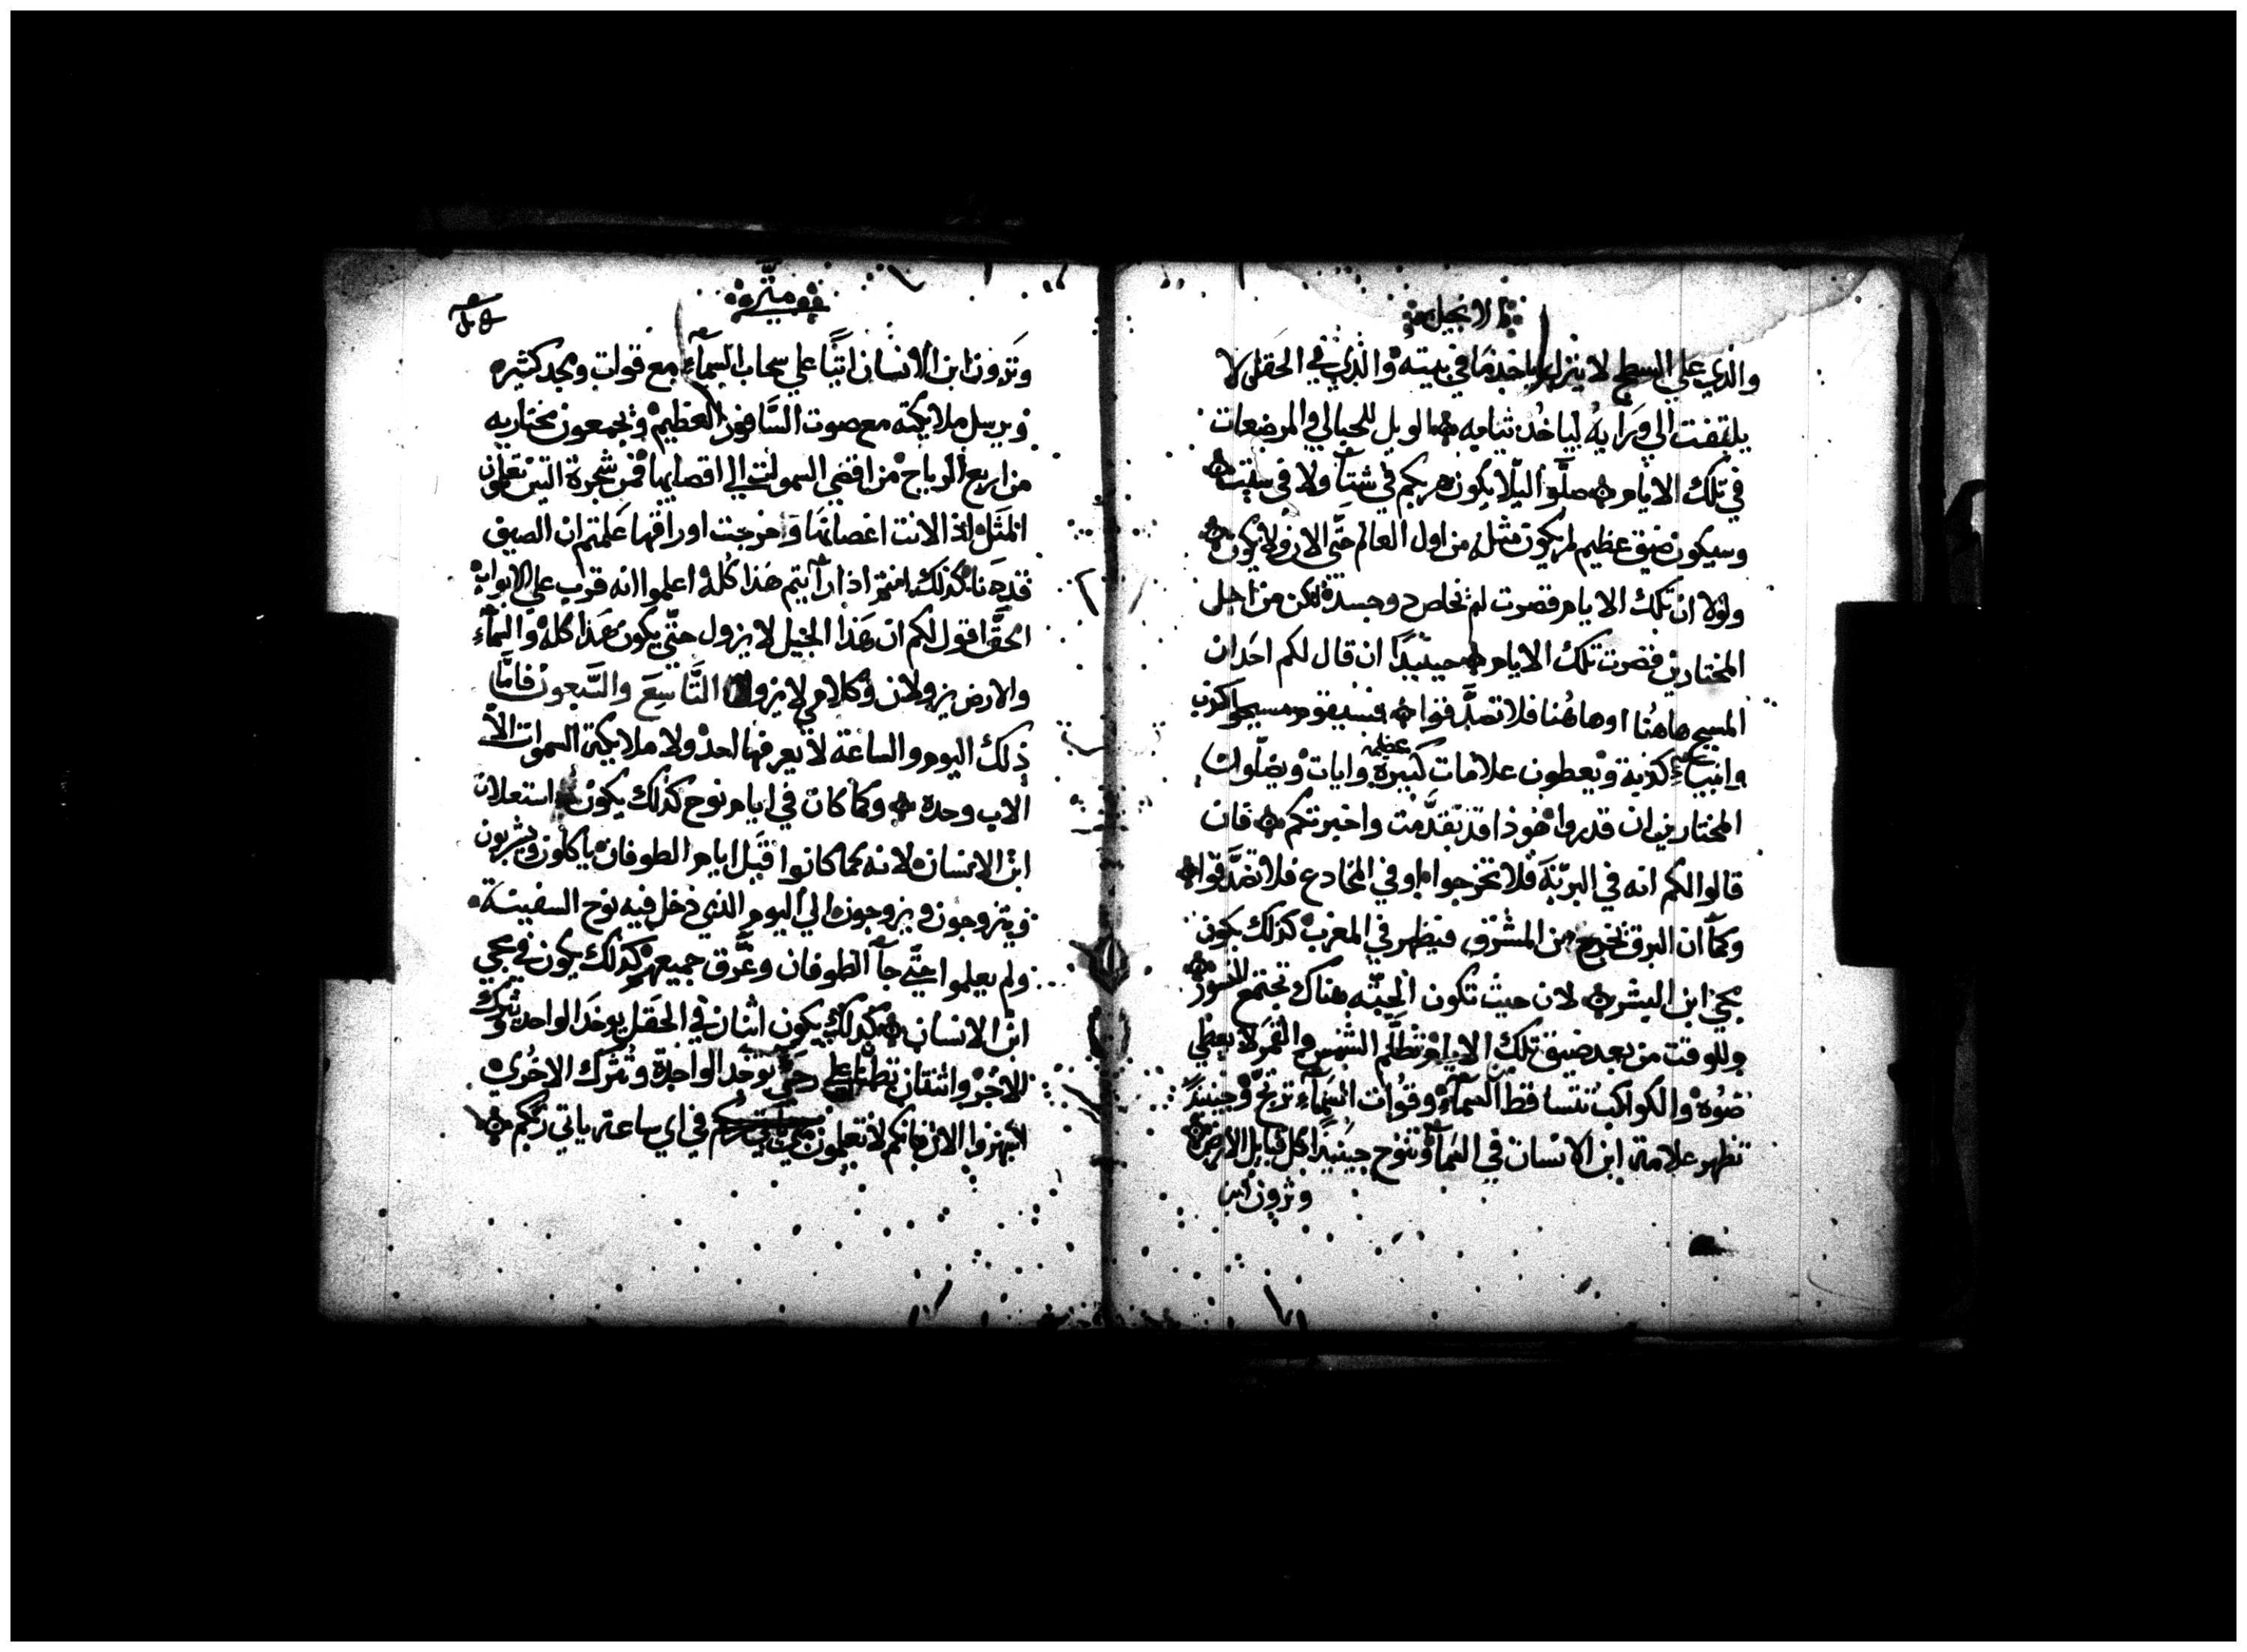 الانجيل
والذي علي السطح لا ينزل لياخذ ما في بيته والذي في الحقل لا
يلتفت الي ورايه لياخذ ثيابه الويل للحبالي والمرضعات
في تلك الايام صلوا ليلا يكون هربكم في شتا ولا في سبت
وسيكون ضيق عظيم لم يكون مثله من اول العالم حتي الان ولا يكون
ولولا ان تلك الايام قصرت لم يخلص ذو جسد لكن من اجل
المختارين قصرت تلك الايام حينيدا ان قال لكم احد ان
المسيح هاهنا او هاهنا فلا تصدقوا فسيقوم مسيحوا كذب
وانبياء كذبة ويعطون علامات كبيرة عظيمه وايات ويضلوان
المختارين ان قدروا هوذا قد تقدمت واخبرتكم فان
قالوا لكم انه في البرية فلا تخرجوا او في المخادع فلا تصدقوا
وكما ان البرق يخرج من المشرق فيظهر في المغرب كذلك يكون
مجي ابن البشر لان حيث تكون الجثه هناك تجتمع النسور
وللوقت من بعد ضيق تلك الايام تظلم الشمس والقمر لا يعطي
ضوه والكواكب تتساقط السماء وقوات السماء ترتج وحينيدا
تظهر علامة ابن الانسان في السماء وتنوح حينيدا كل قبايل الارض
وترون ابن
متي
وترون ابن الانسان اتيا علي سحاب السماء مع قوات ومجد كثيره
ويرسل ملايكته مع صوت السافور العظيم ويجمعون مختاريه
من اربع الرياح من اقصي السموات الي اقصايها فمن شجرة التين تعلمون
المثل اذ الانت اغصانها واخرجت اوراقها علمتم ان الصيف
قد دنا كذلك انتم اذا رايتم هذا كله اعلموا انه قرب علي الابواب
الحق اقول لكم ان هذا الجيل لا يزول حتي يكون هذا كله والسماء
والارض يزولان وكلامي لا يزول التاسع والتسعون فاما
ذلك اليوم والساعة لا يعرفها احد ولا ملايكة السموات الا
الاب وحده وكما كان في ايام نوح كذلك يكون استعلان
ابن الانسان لانه كما كانوا قبل ايام الطوفان ياكلون ويشربون
ويتزوجون ويزوجون الي اليوم الذي دخل فيه نوح السفينة
ولم يعلموا حتي جا الطوفان وغرق جميعهم كذلك يكون في مجي
ابن الانسان كذلك يكون اثنان في الحقل يوخذ الواحد ويترك
الاخر واثنتان تطحنان علي رحي يوخذ الواحدة وتترك الاخري
اسهروا الان فانكم لا تعلمون في اي ساعة ياتي ربكم